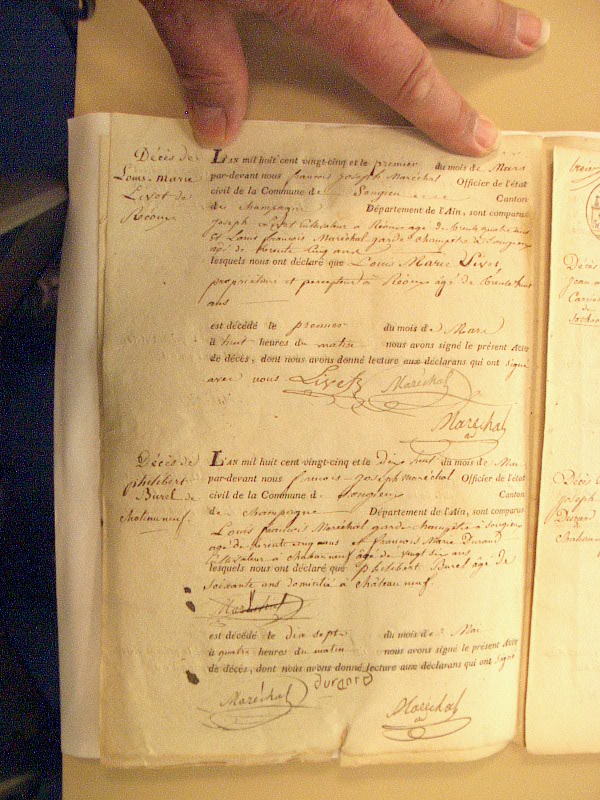 Décès de
Louis-marie
Livet de
Réoux
L'AN mil huit cent vingt-cinq et le premier du mois de Mars
par-devant nous françois joseph Maréchal Officier de l'état
civil de la Commune de Songieu Canton
de champagne Département de l'Ain, sont comparus
joseph Livet cultivateur à Réoux age de trente quatre ans
et Louis françois Maréchal garde champetre à Songieu
age de trente cinq ans
lesquels nous ont déclaré que Louis Marie Livet
propriétaire et percepteur à Réoux âgé de trente huit
ans
est décédé le premier du mois de Mars
à huit heures du matin nous avons signé le présent Acte
de décès, dont nous avons donné lecture aux déclarans qui ont signé
avec nous Livet Maréchal
Maréchal
Décès de
philibert
Burel de
chateauneuf
L'AN mil huit cent vingt-cinq et le dix huit du mois de Mai
par-devant nous françois joseph Maréchal Officier de l'état
civil de la Commune de Songieu Canton
de champagne Département de l'Ain, sont comparus
Louis françois Maréchal garde champêtre à Songieu
age de trente cinq ans et françois Marie Durand
âgé de vingt six ans
lesquels nous ont déclaré que philibert Burel âge de
soixante ans domicilié à château neuf
est décédé le dix sept du mois de Mai
à quatre heures du matin nous avons signé le présent Acte
de décès, dont nous avons donné lecture aux déclarans qui ont signé
durand
Maréchal Maréchal
Décès
joseph
Durand